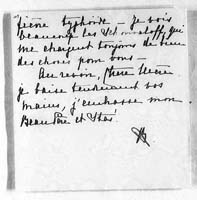 fièvre typhoïde – je vois
beaucoup les Schouvaloff, qui
me chargent toujours de bien
des choses pour vous –
Au revoir, chère
je baise tendrement vos
mains, j'embrasse mon
Beau Père et